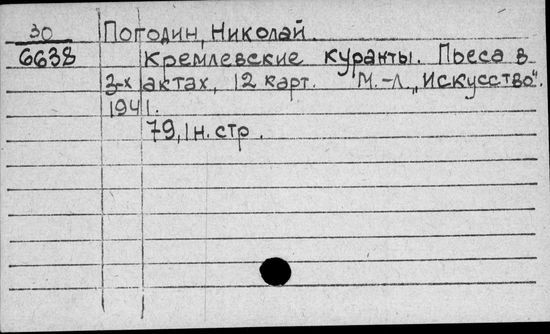 30 Погодин, Николай.
6638 Кремлевские куранты. Пьеса в
3-х актах, 12 карт. М.-Л., „Искусство“.
1941.
79, 1 н. стр.